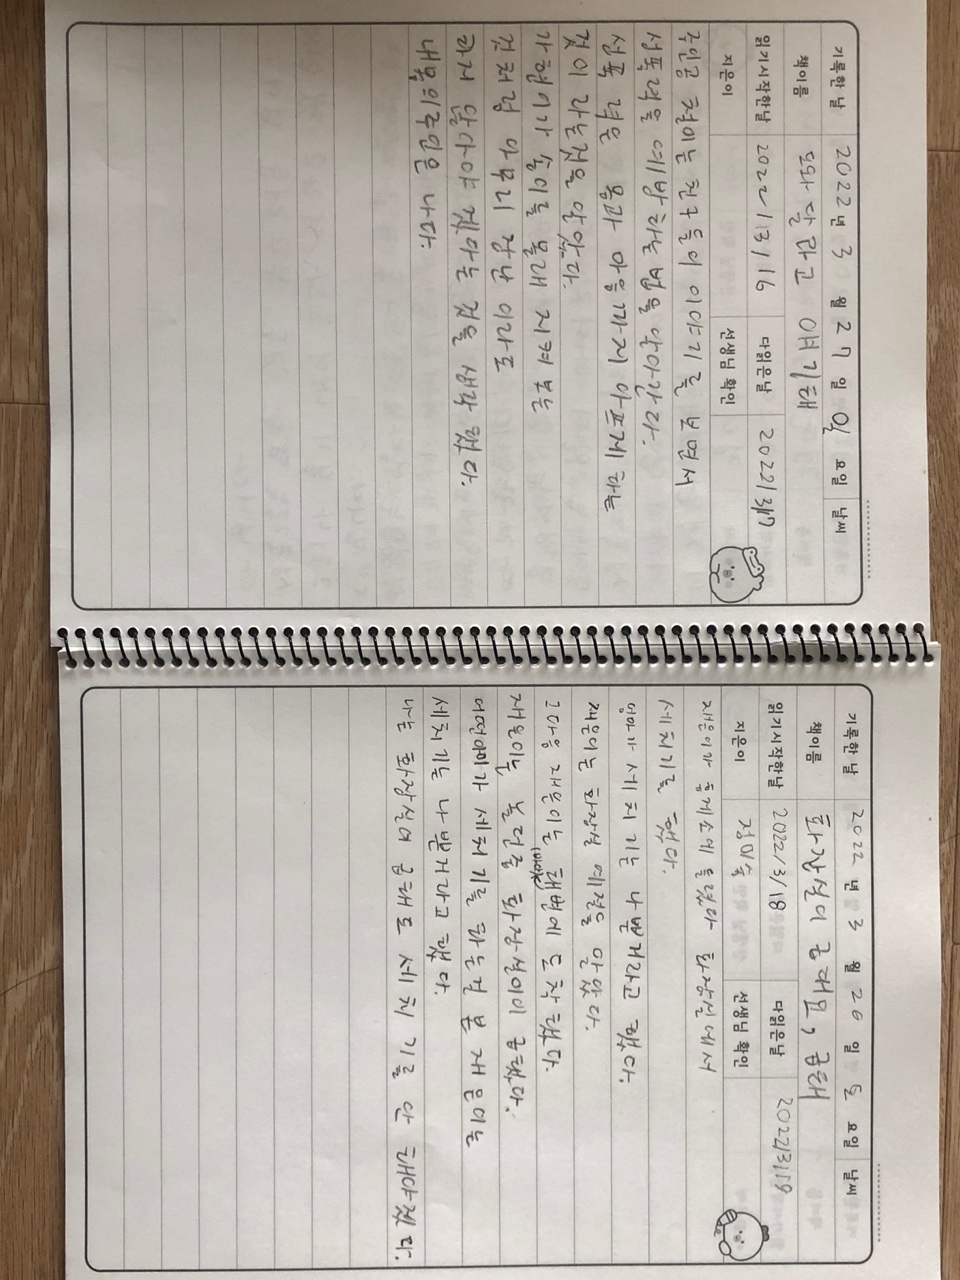 기록한 날 2022 년 3 월 27 일 일 요일 날씨
책이름 도와 달라고 얘기해
읽기시작한날 2022/3/16 다읽은날 2022/3/17
지은이 선생님 확인
주인공 철이는 친구들의 이야기를 보면서
성폭력을 예방하는법을 알아간다.
성폭력은 몸과 마음까지 아프게 하는
것이 라는것을 알았다.
가현이가 송이를 몰래 지켜 보는
것처럼 아무리 장난 이라도
하지 않아야 겠다는 것을 생각 했다.
내몸의주인은 나다.
기록한 날 2022 년 3 월 26 일 토 요일 날씨
책이름 화장실이 급해요, 급해
읽기시작한날 2022/3/18 다읽은날 2022/3/19
지은이 정미숙 선생님 확인
재은이가 휴게소에 들렸다 화장실에서
세치기를 했다.
엄마가 세치기는 나쁜거라고 했다.
재은이는 화장실 예절을 알았다.
그다음 재은이는 해변에 도착했다.
(바다)
재은이는 놀던중 화장실이이 급했다.
어떤아이가 세치기를 하는걸 본 재은이는
세치기는 나쁜거라고 했다.
나는 화장실이 급해도 세치기를 안 해야겠다.